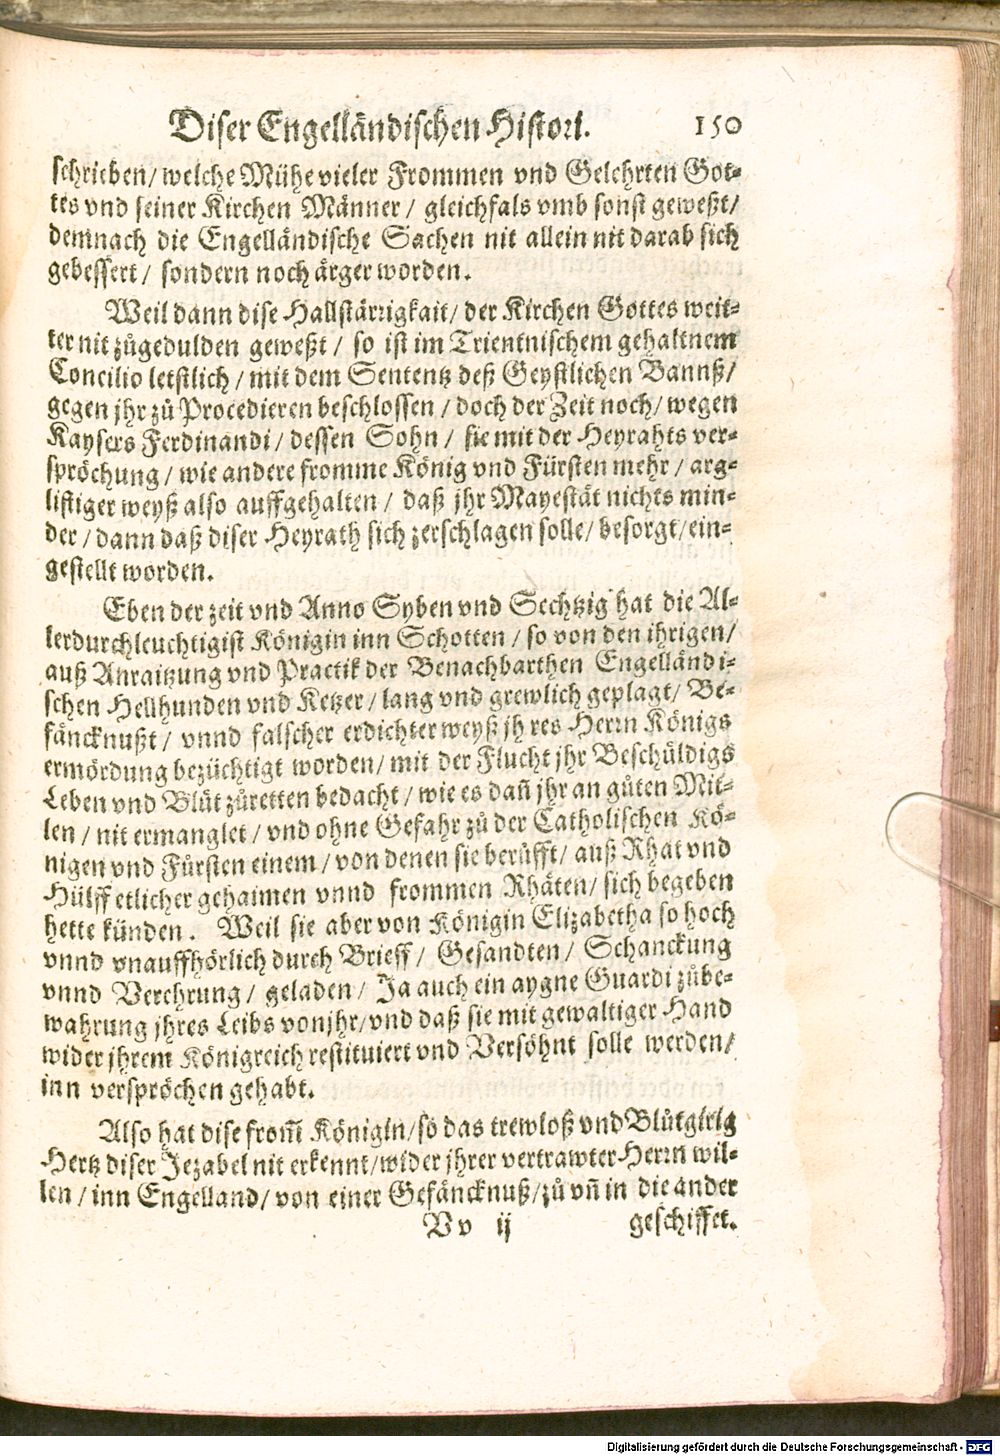 Diser Engelländischen Histori. 150
schrieben/ welche Mühe vieler Frommen vnd Gelehrten Got-
tes vnd seiner Kirchen Männer / gleichfals vmb sonst geweßt/
demnach die Engelländische Sachen nit allein nit darab sich
gebessert / sondern noch ärger worden.
Weil dann dise Hallstärrigkait/ der Kirchen Gottes weit-
ter nit zůgedulden geweßt / so ist im Trientnischem gehaltnem
Concilio letstlich / mit dem Sententz deß Geystlichen Bannß/
gegen jhr zů Procedieren beschlossen / doch der Zeit noch/ wegen
Kaysers Ferdinandi / dessen Sohn / sie mit der Heyrahts ver-
spröchung / wie andere fromme König vnd Fürsten mehr / arg-
listiger weyß also auffgehalten / daß jhr Mayestät nichts min-
der / dann daß diser Heyrath sich zerschlagen solle/ besorgt/ ein-
gestellt worden.
Eben der zeit vnd Anno Syben vnd Sechtzig hat die Al-
lerdurchleuchtigist Königin inn Schotten / so von den ihrigen/
auß Anraitzung vnd Practik der Benachbarthen Engelländi-
schen Hellhunden vnd Ketzer / lang vnd grewlich geplagt/ Be-
fäncknußt / vnnd falscher erdichter weyß jhres Herrn Königs
ermördung bezüchtigt worden/ mit der Flucht jhr Beschüldigs
Leben vnd Blůt zůretten bedacht / wie es dañ jhr an gůten Mit-
len / nit ermanglet / vnd ohne Gefahr zů der Catholischen Kö-
nigen vnd Fürsten einem / von denen sie berůfft/ auß Rhat vnd
Hülff etlicher gehaimen vnnd frommen Rhäten/ sich begeben
hette künden. Weil sie aber von Königin Elizabetha so hoch
vnnd vnauffhörlich durch Brieff / Gesandten / Schanckung
vnnd Verehrung / geladen / Ja auch ein aygne Guardi zůbe-
wahrung jhres Leibs von jhr/ vnd daß sie mit gewaltiger Hand
wider jhrem Königreich restituiert vnd Versöhnt solle werden/
inn verspröchen gehabt.
Also hat dise from̃ Königin/ so das trewloß vnd Blůtgirig
Hertz diser Jezabel nit erkennt/ wider jhrer vertrawter Herrn wil-
len / inn Engelland/ von einer Gefäncknuß/ zů vñ in die ander
Vv ij geschiffet.
Digitalisierung gefördert durch die Deutsche Forschungsgemeinschaft - DFG